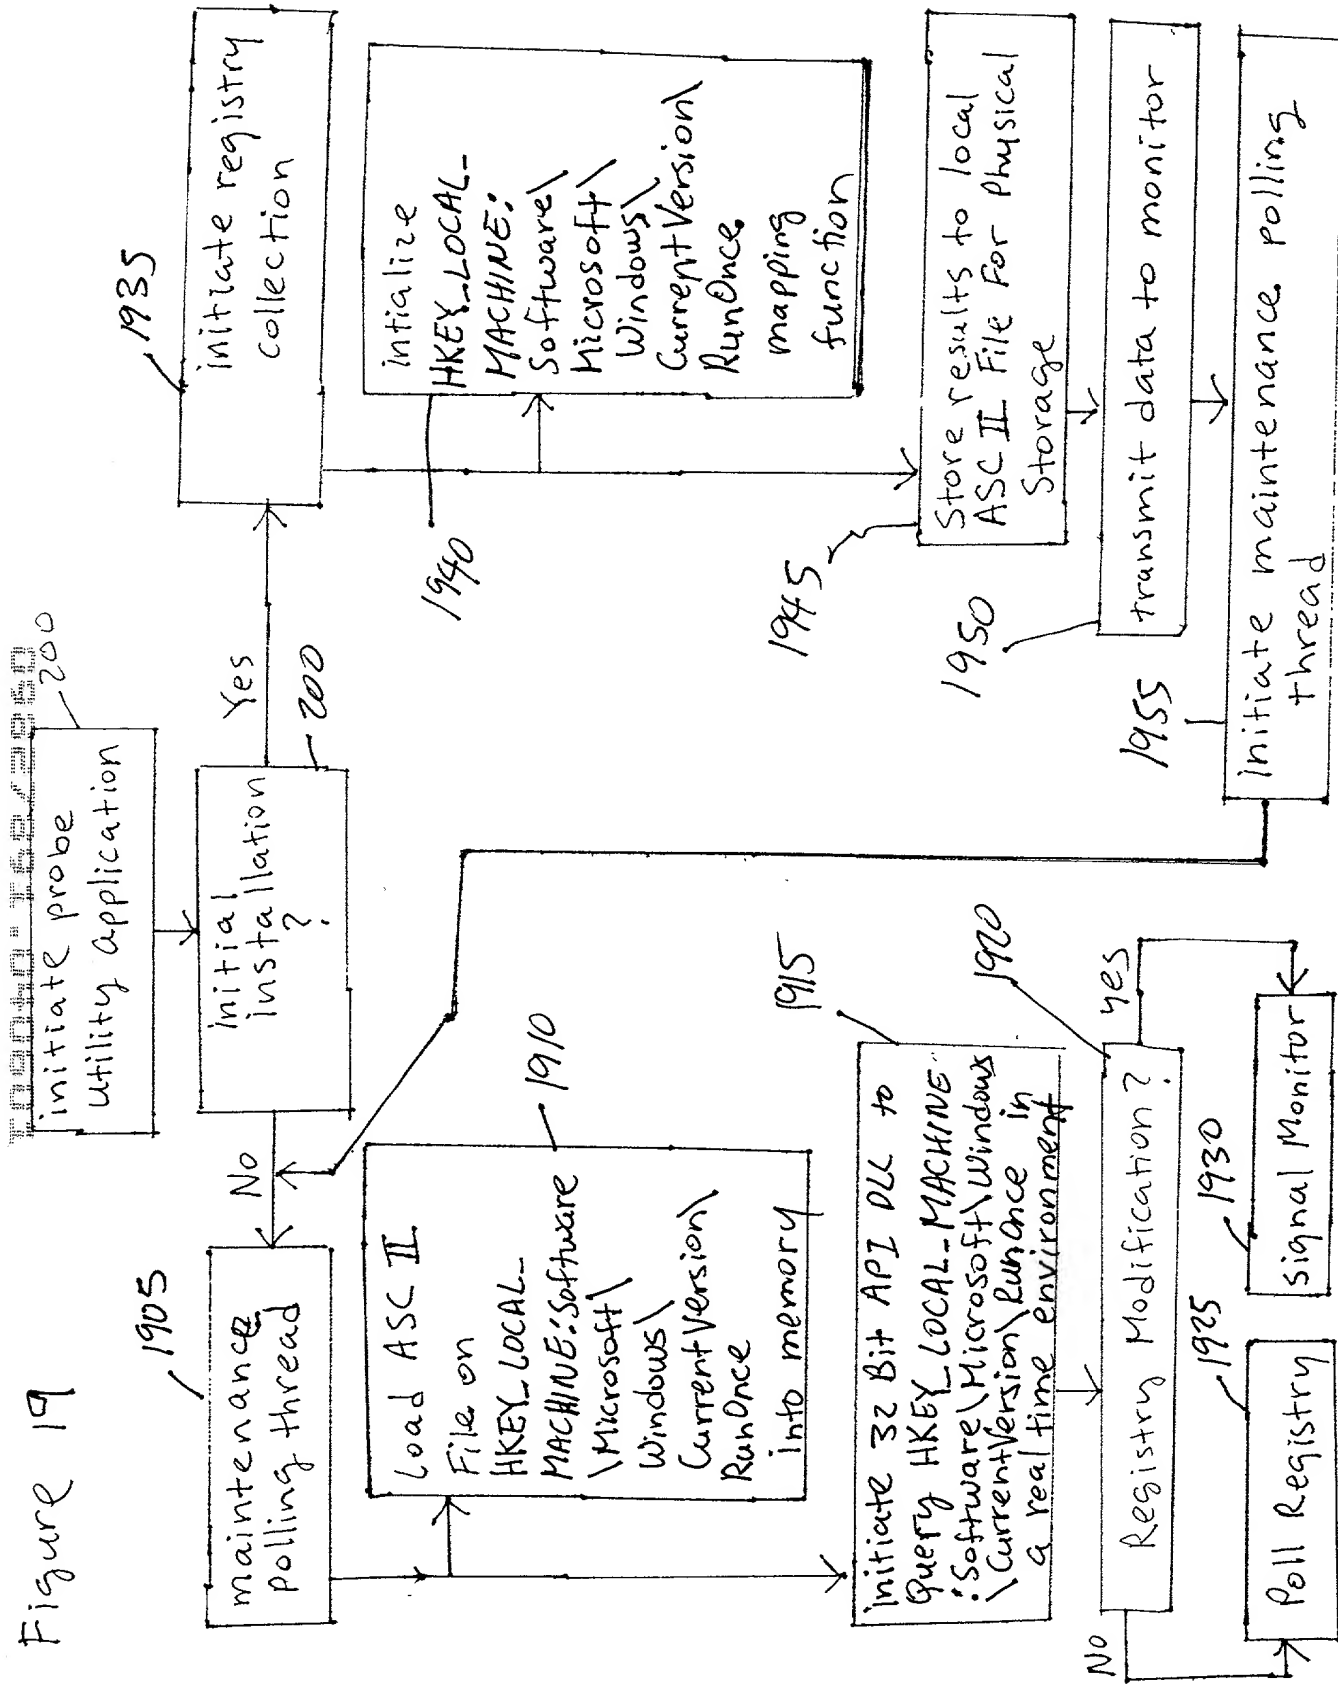 Figure 19
initiate probe
Utility application
200
initial
installation
?
200
No
Yes
1905
maintenance
polling thread
1910
Load ASC II
File on
HKEY_LOCAL_
MACHINE:Software
\Microsoft\
Windows\
CurrentVersion\
RunOnce
into memory
1915
initiate 32 Bit API DLL to
Query HKEY_LOCAL_MACHINE
:Software\Microsoft\Windows
\CurrentVersion\RunOnce in
a real time environment
1920
Registry Modification?
No
yes
1925
Poll Registry
1930
signal Monitor
1935
initiate registry
collection
1940
intialize
HKEY_LOCAL_
MACHINE:
Software\
Microsoft\
Windows\
CurrentVersion\
RunOnce
mapping
function
1945
Store results to local
ASC II File For Physical
Storage
1950
transmit data to monitor
1955
initiate maintenance polling
thread